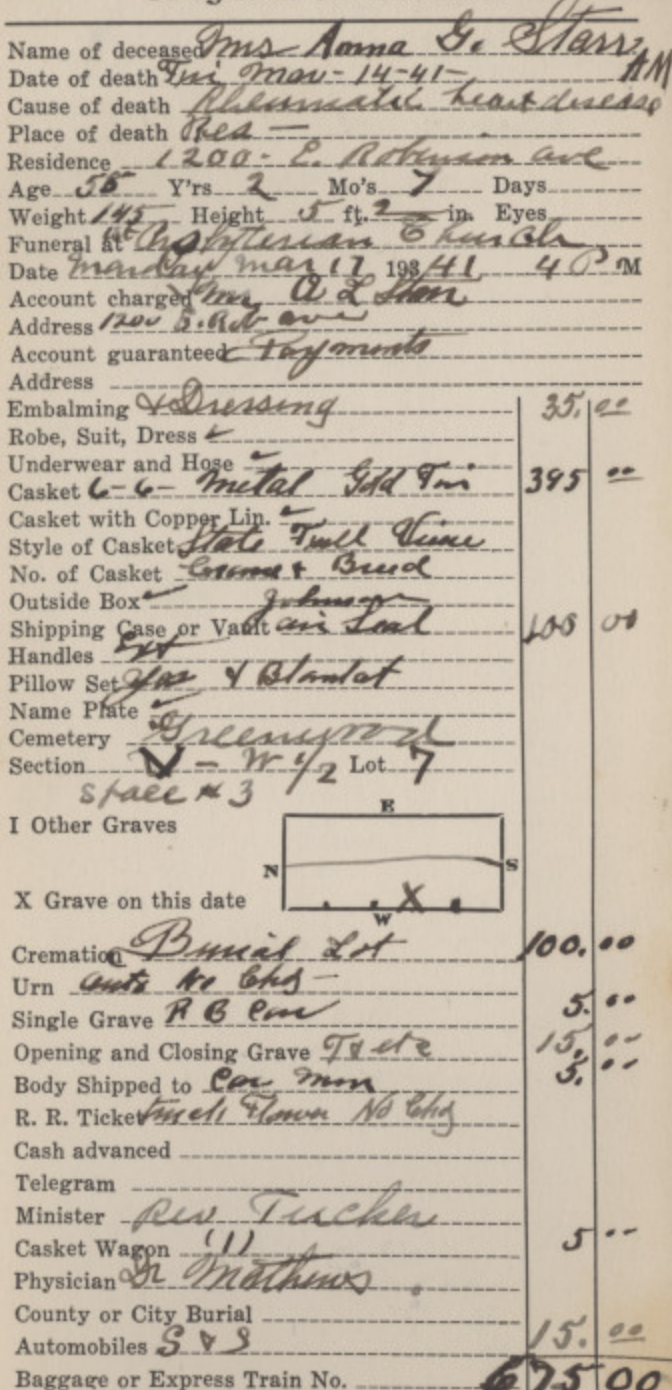 Name of deceased Mrs Anna G. Starr
Date of death Fri Mar-14-41- AM
Cause of death Rheumatic heart disease
Place of death Res —
Residence 1200- E. Robinson ave
Age 55 Y'rs 2 Mo's 7 Days
Weight 145 Height 5 ft. 2 in. Eyes
Funeral at Presbyterian Church
Date Monday Mar 17 193 41 4 P M
Account charged Mr. A L Starr
Address 1200 E. Rob ave
Account guaranteed Payments
Address
Embalming & Dressing 35.00
Robe, Suit, Dress
Underwear and Hose
Casket 6-6- Metal Gold 395 00
Casket with Copper Lin.
Style of Casket State Full View
No. of Casket
Outside Box Johnson
Shipping Case or Vault air Seal 100 00
Handles Ext
Pillow Set Yes & Blanket
Name Plate
Cemetery Greenwood
Section V - W 1/2 Lot 7
Space # 3
E
I Other Graves
N S
X Grave on this date X
W
Cremation Burial Lot 100.00
Urn No Chg -
Single Grave 5.00
Opening and Closing Grave T & etc 15.00
Body Shipped to 5.00
R. R. Ticket Truck Flower No Chg
Cash advanced
Telegram
Minister Rev Tucker
Casket Wagon (1) 5 00
Physician Dr Mathews
County or City Burial
Automobiles S & S 15.00
Baggage or Express Train No. 675 00